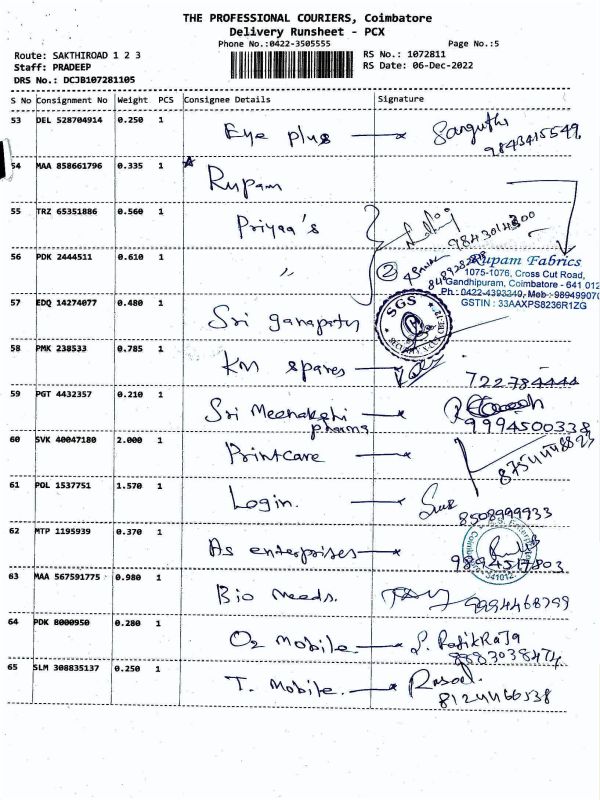 THE PROFESSIONAL COURIERS, Coimbatore
Delivery Runsheet - PCX
Phone No.:0422-3505555
Page No.:5
Route: SAKTHIROAD 1 2 3
Staff: PRADEEP
DRS No.: DCJB107281105
RS No.: 1072811
RS Date: 06-Dec-2022
S No Consignment No Weight PCS Consignee Details Signature
53 DEL 528704914 0.250 1 Eye plus
9843415549
54 MAA 858661796 0.335 1 Rupam
55 TRZ 65351886 0.560 1 Priyaa's
9843014300
56 PDK 2444511 0.610 1 " 2
Rupam Fabrics
1075-1076, Cross Cut Road,
Gandhipuram, Coimbatore - 641 012
Ph.: 0422-4393240, Mob : 989499070
GSTIN : 33AAXPS8236R1ZG
57 EDQ 14274077 0.480 1 Sri ganapathy
SGS
58 PMK 238533 0.785 1 KM spares
722784444
59 PGT 4432357 0.210 1 Sri Meenakshi pharma
9994500338
60 SVK 40047180 2.000 1 Printcare
61 POL 1537751 1.570 1 Login.
8508999933
62 MTP 1195939 0.370 1 As enterprises
9894517803
641012
63 MAA 567591775 0.980 1 Bio needs.
9994468799
64 PDK 8000950 0.280 1 O2 mobile
S. RafikRaja
8883038474
65 SLM 308835137 0.250 1 T. Mobile.
8124466538